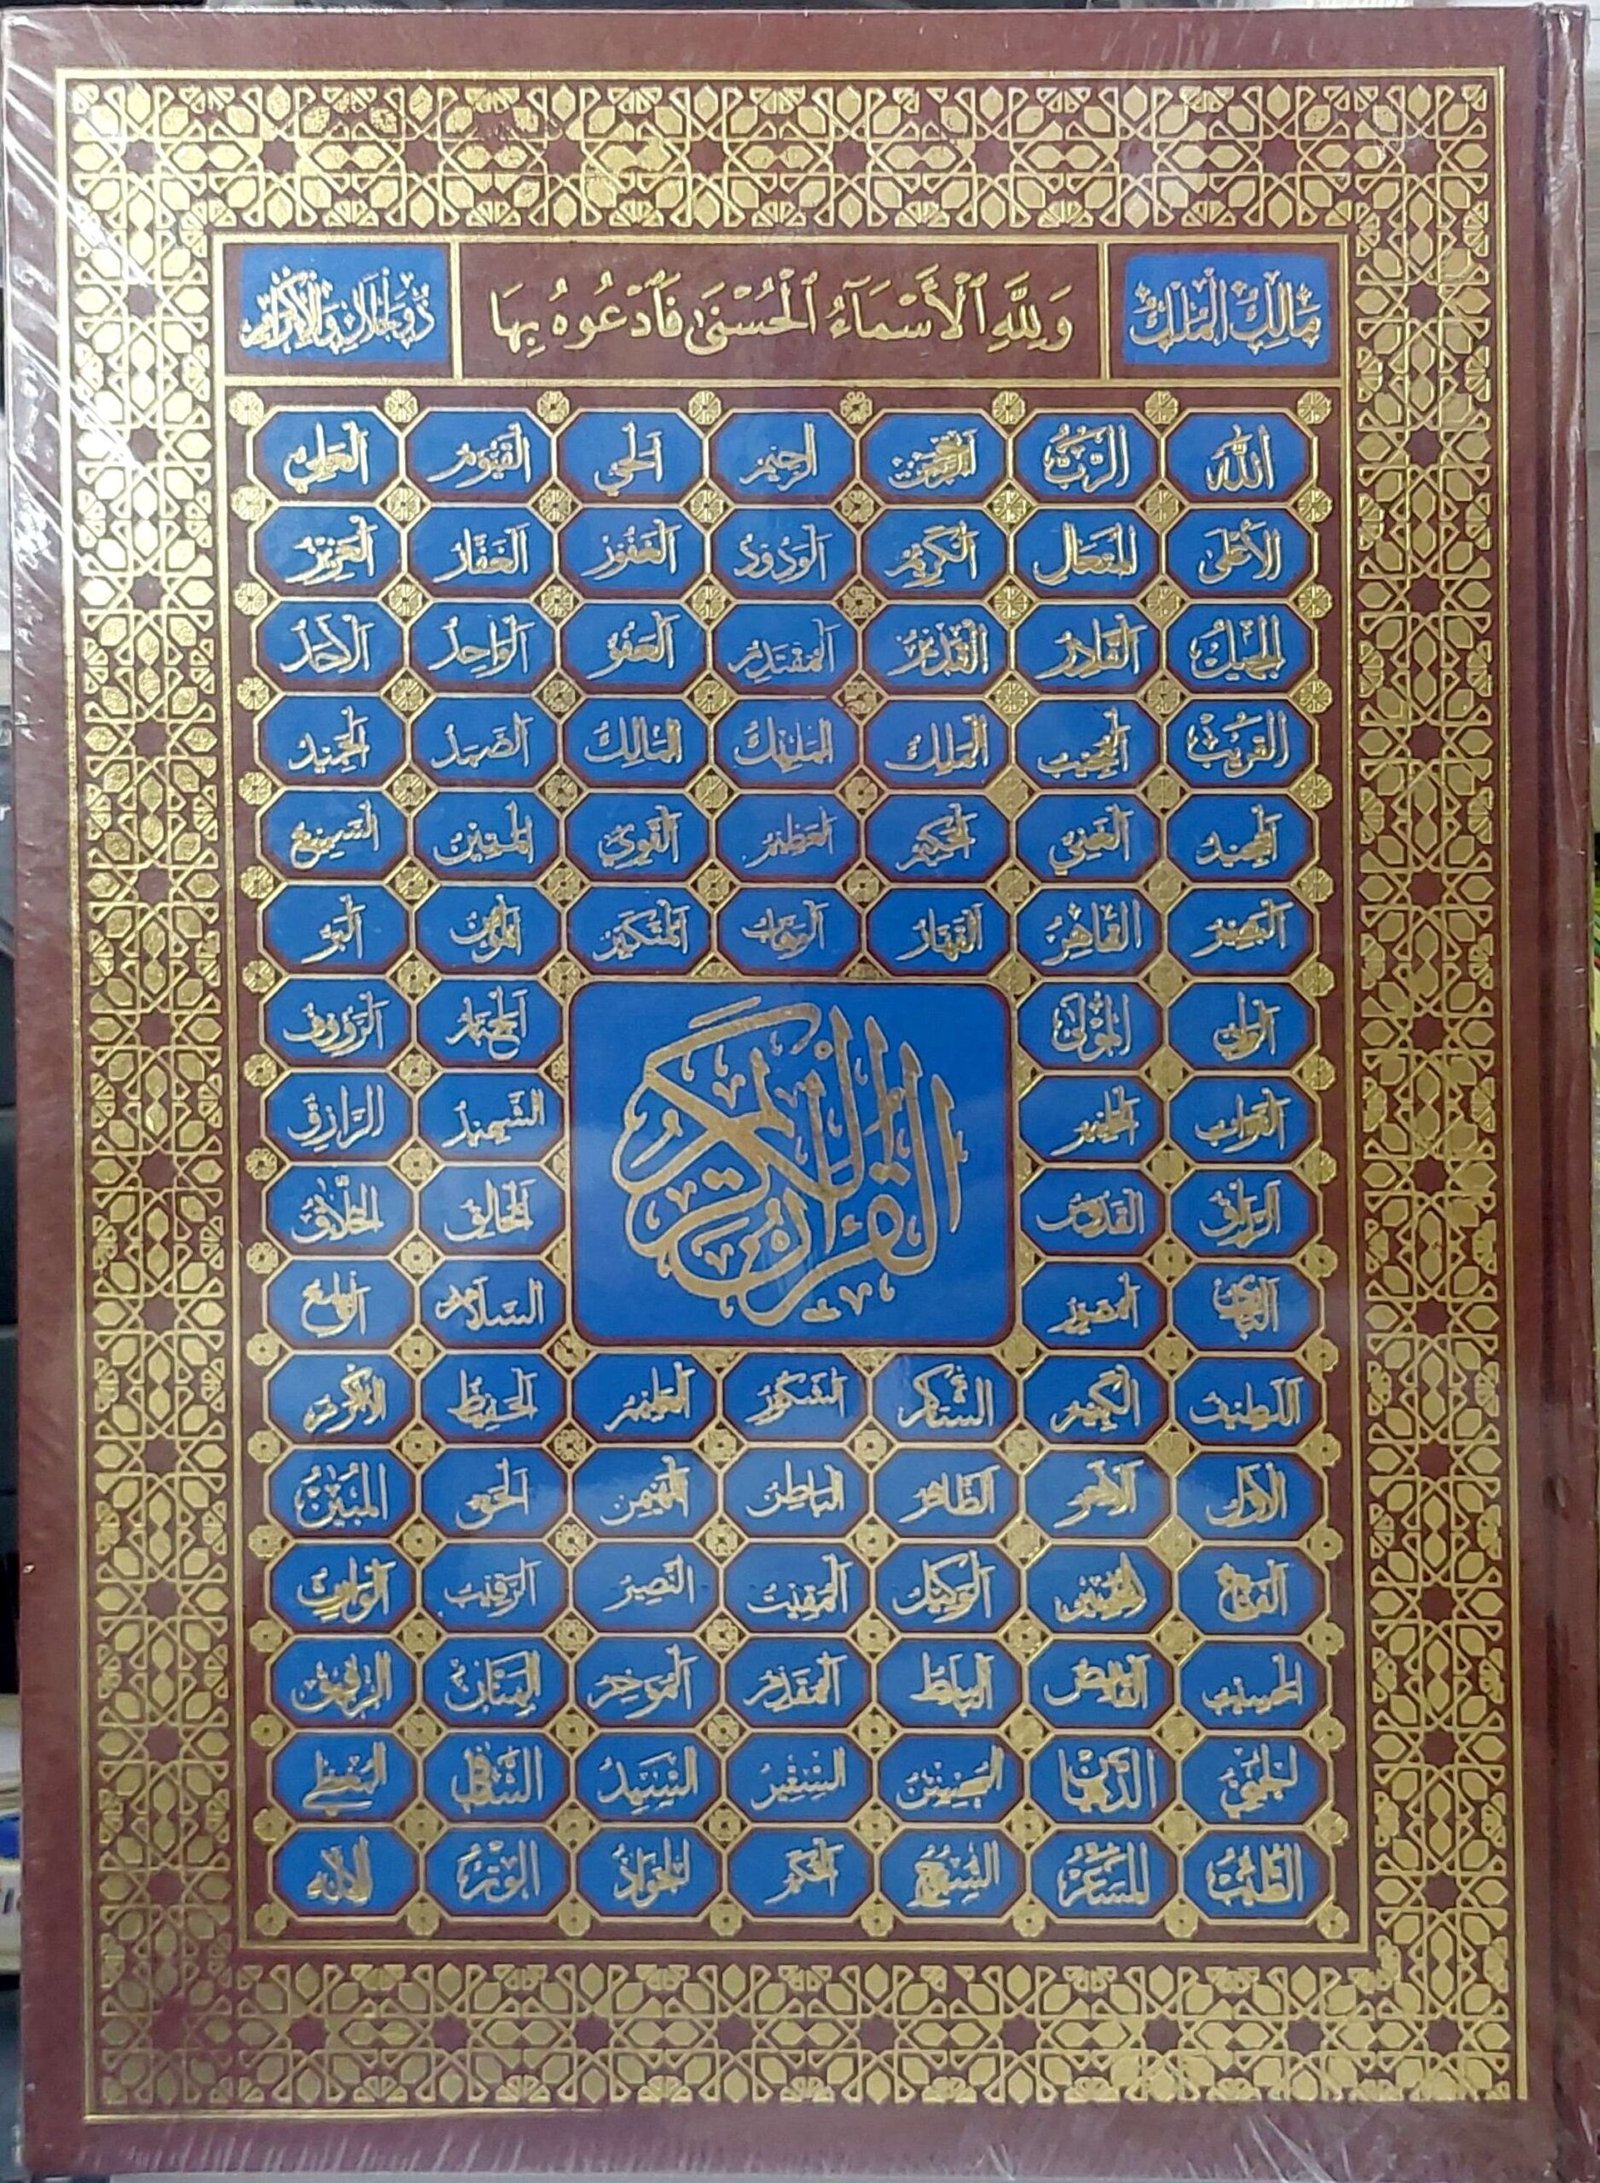 مَالِكُ الْمُلْكِ وَلِلَّهِ الْأَسْمَاءُ الْحُسْنَىٰ فَادْعُوهُ بِهَا ذُو الْجَلَالِ وَالْإِكْرَامِ
الله الرَّبُّ الرحمن الرحيم الحي القيوم العليم
الأعلى المتعال الكريم الودود الغفور الغفار العزيز
القادر القدير المقتدر العفو الواحد الأحد
القريب المجيب الملك المليك المالك الصمد الحميد
المجيد الغني الحكيم العظيم القوي المتين السميع
البصير القاهر القهار الوهاب المتكبر المؤمن البر
الولي المولى الجبار الرؤوف
التواب الشهيد الرازق
الرزاق القدوس الخالق الخلاق
البارئ المصور السلام الواسع
القرآن الكريم
اللطيف الشاكر الشكور الحليم الحفيظ الأكرم
الأول الآخر الظاهر الباطن المهيمن الحق المبين
الفتاح الوكيل المقيت النصير الرقيب الوارث
الحسيب القابض الباسط المقدم المؤخر المنان الرفيق
السيد الشافي المعطي
الطيب المسعر السبوح الحكم الجواد الوتر الإله